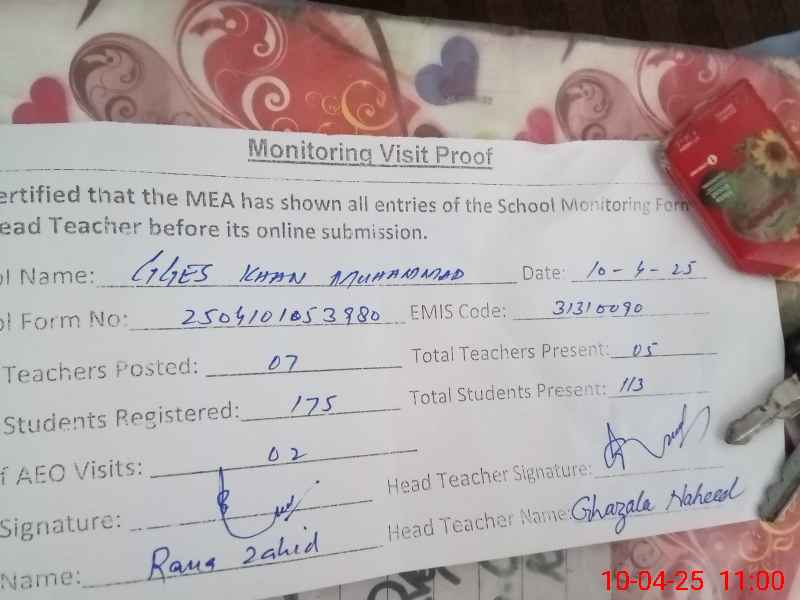 Monitoring Visit Proof
ertified that the MEA has shown all entries of the School Monitoring Form
ead Teacher before its online submission.
ol Name: GGES KHAN MUHAMMAD Date: 10-4-25
ol Form No: 2504101053980 EMIS Code: 31310090
Teachers Posted: 07 Total Teachers Present: 05
Students Registered: 175 Total Students Present: 113
f AEO Visits: 02
Signature: Head Teacher Signature:
Name: Rana Zahid Head Teacher Name: Ghazala Naheed
10-04-25 11:00